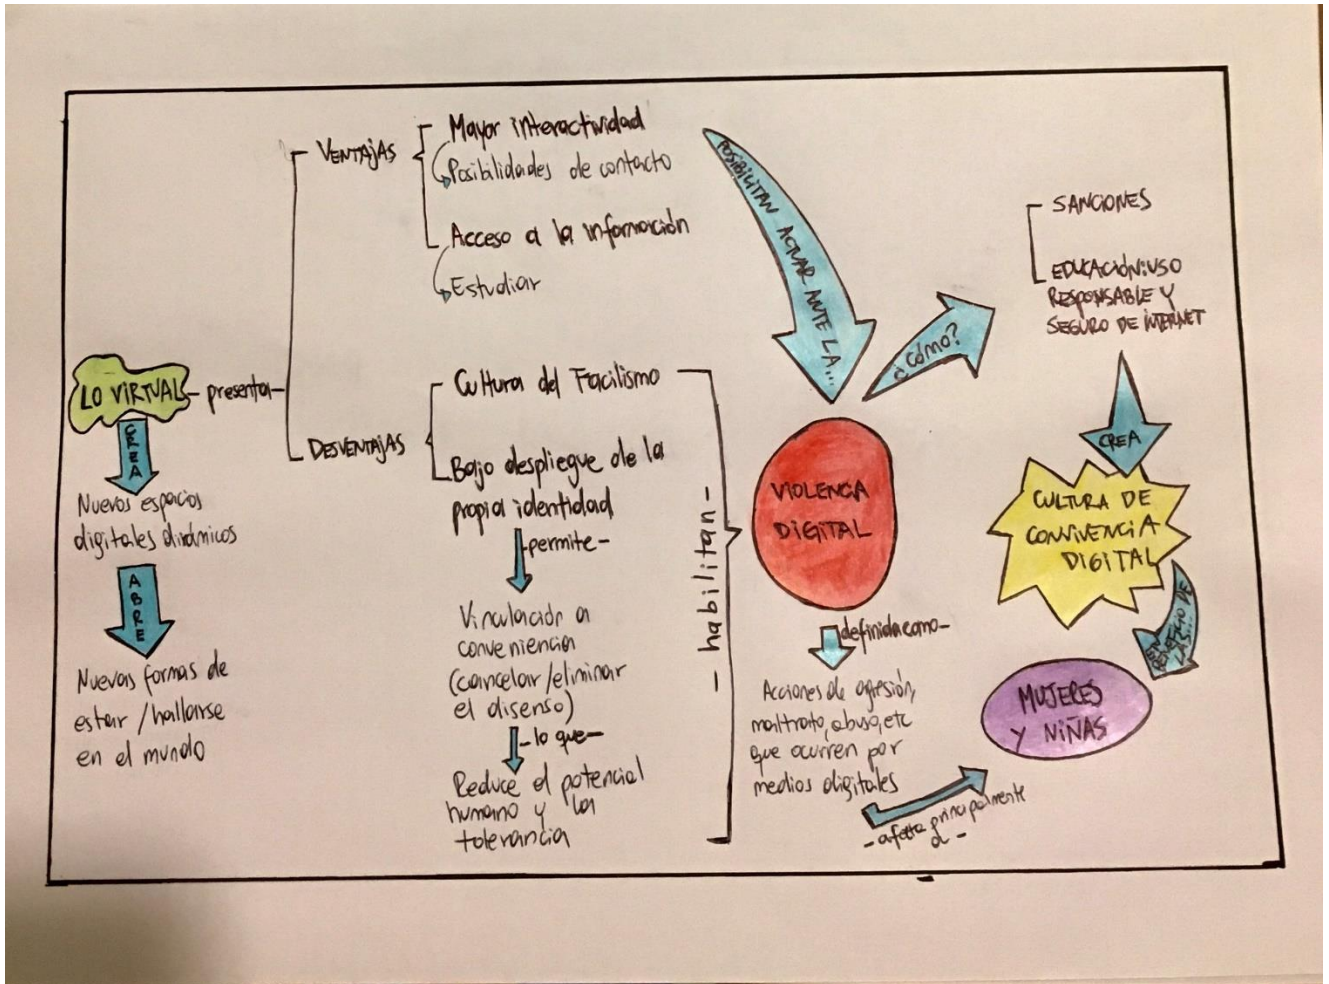 LO VIRTUAL
- presenta -
CREA
Nuevos espacios
digitales dinámicos
ABRE
Nuevas formas de
estar / hallarse
en el mundo
VENTAJAS
Mayor interactividad
Posibilidades de contacto
Acceso a la información
Estudiar
DESVENTAJAS
Cultura del Facilismo
Bajo despliegue de la
propia identidad
- permite -
Vinculación a
conveniencia
(cancelar/eliminar
el disenso)
- lo que -
Reduce el potencial
humano y la
tolerancia
- habilitan -
POSIBILITAN ACTUAR ANTE LA...
VIOLENCA
DIGITAL
- definida como -
Acciones de agresión,
maltrato, abuso, etc
que ocurren por
medios digitales
- afecta principalmente
a -
¿CÓMO?
SANCIONES
EDUCACIÓN: USO
RESPONSABLE Y
SEGURO DE INTERNET
CREA
CULTURA DE
CONVIVENCIA
DIGITAL
EN
BENEFICIO DE
LAS...
MUJERES
Y NIÑAS